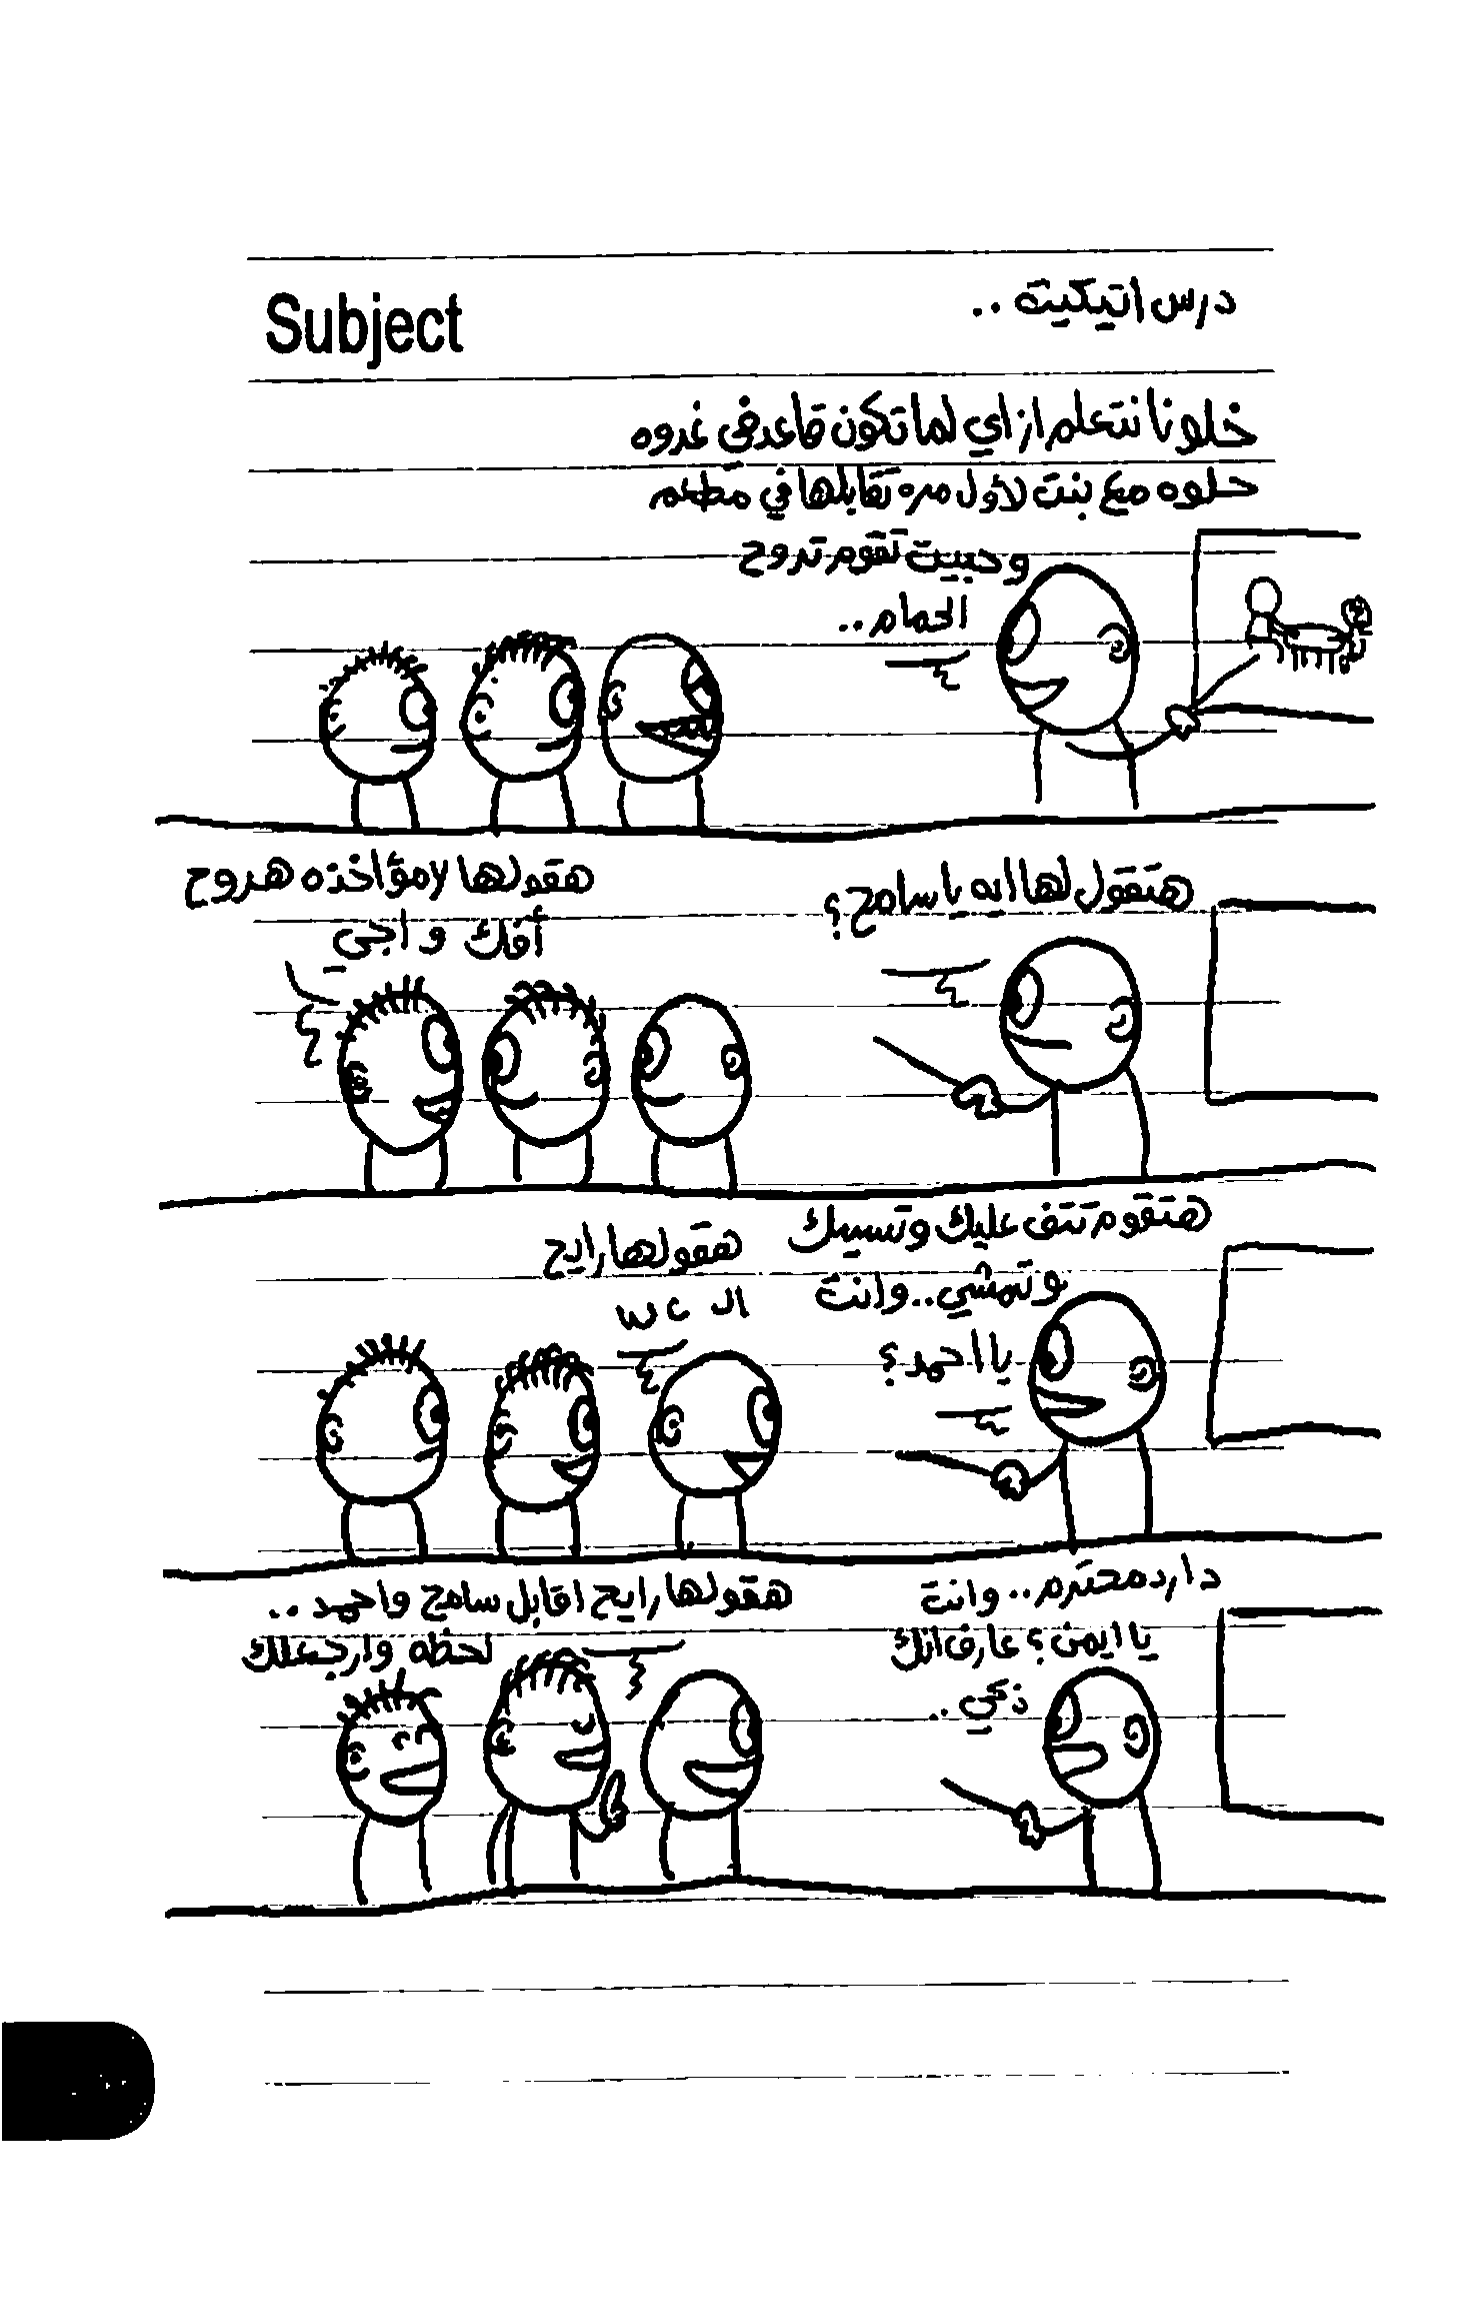 Subject
درس اتيكيت ..
خلونا نتعلم ازاي لما تكون قاعد في غدوه
حلوه مع بنت لأول مره تقابلها في مطعم
وحبيت تقوم تروح
الحمام ..
هتقول لها ايه يا سامح ؟
هقولها لامؤاخذه هروح
أفك و اجي
هتقوم تتف عليك وتسيبك
وتمشي .. وانت
يا احمد ؟
هقولها رايح
ال w c
دا رد محترم .. وانت
يا ايمن ؟ عارف انك
ذكي ..
هقولها رايح اقابل سامح واحمد ..
لحظه وارجعلك